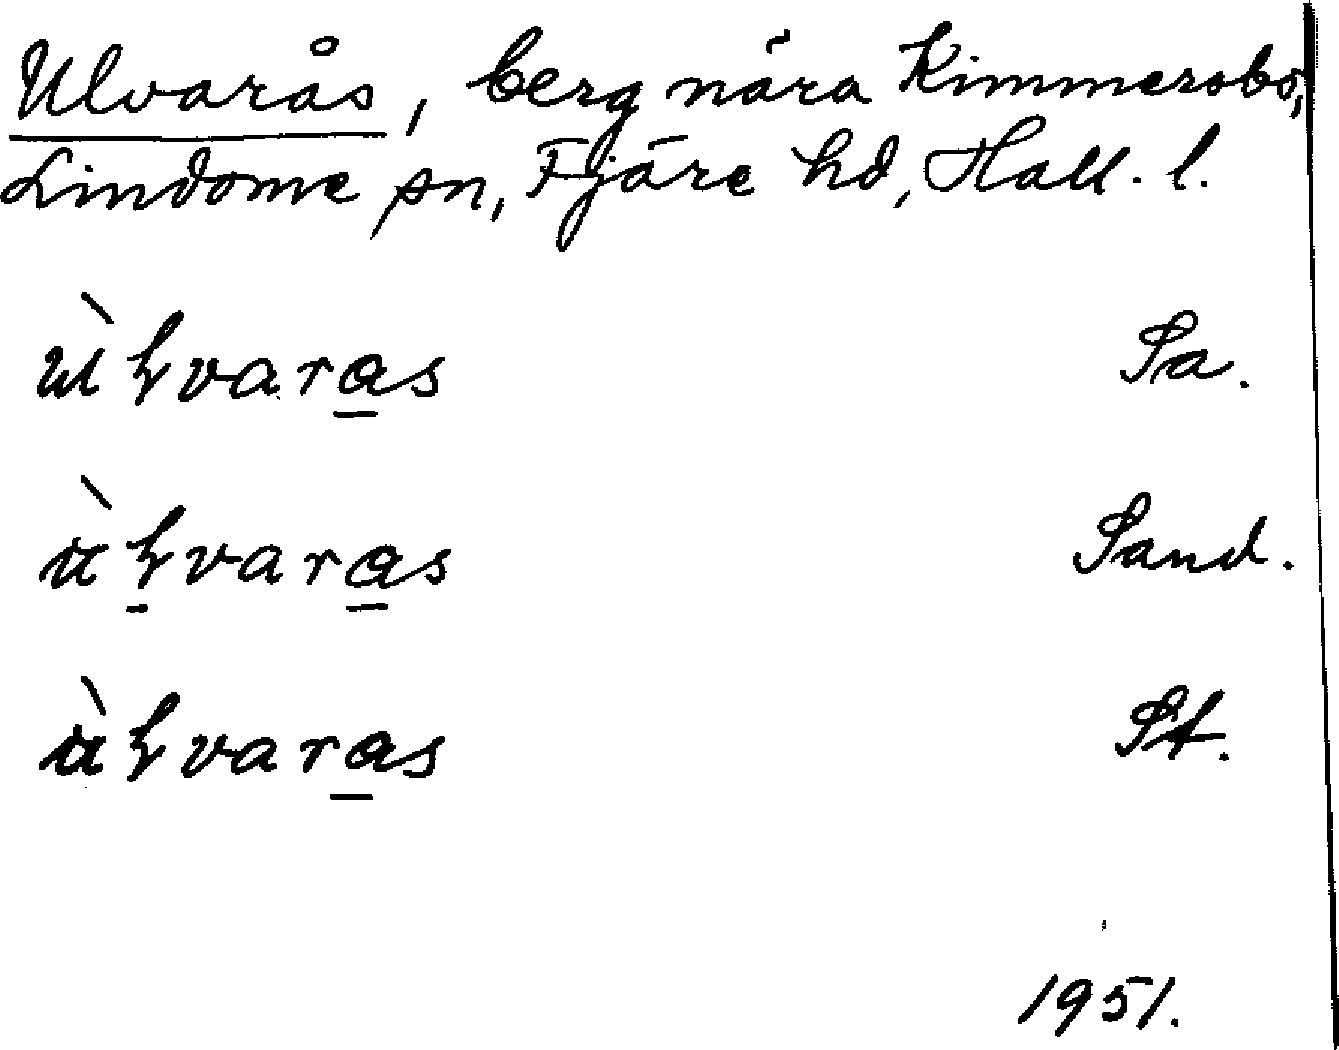 Ulvarås, berg nära Kimmersbo,
Lindome sn, Fjäre hd, Hall. l.
ùɫvara̲s Sa.
ùɫ̠vara̲s Sand.
ùɫvara̲s St.
1951.